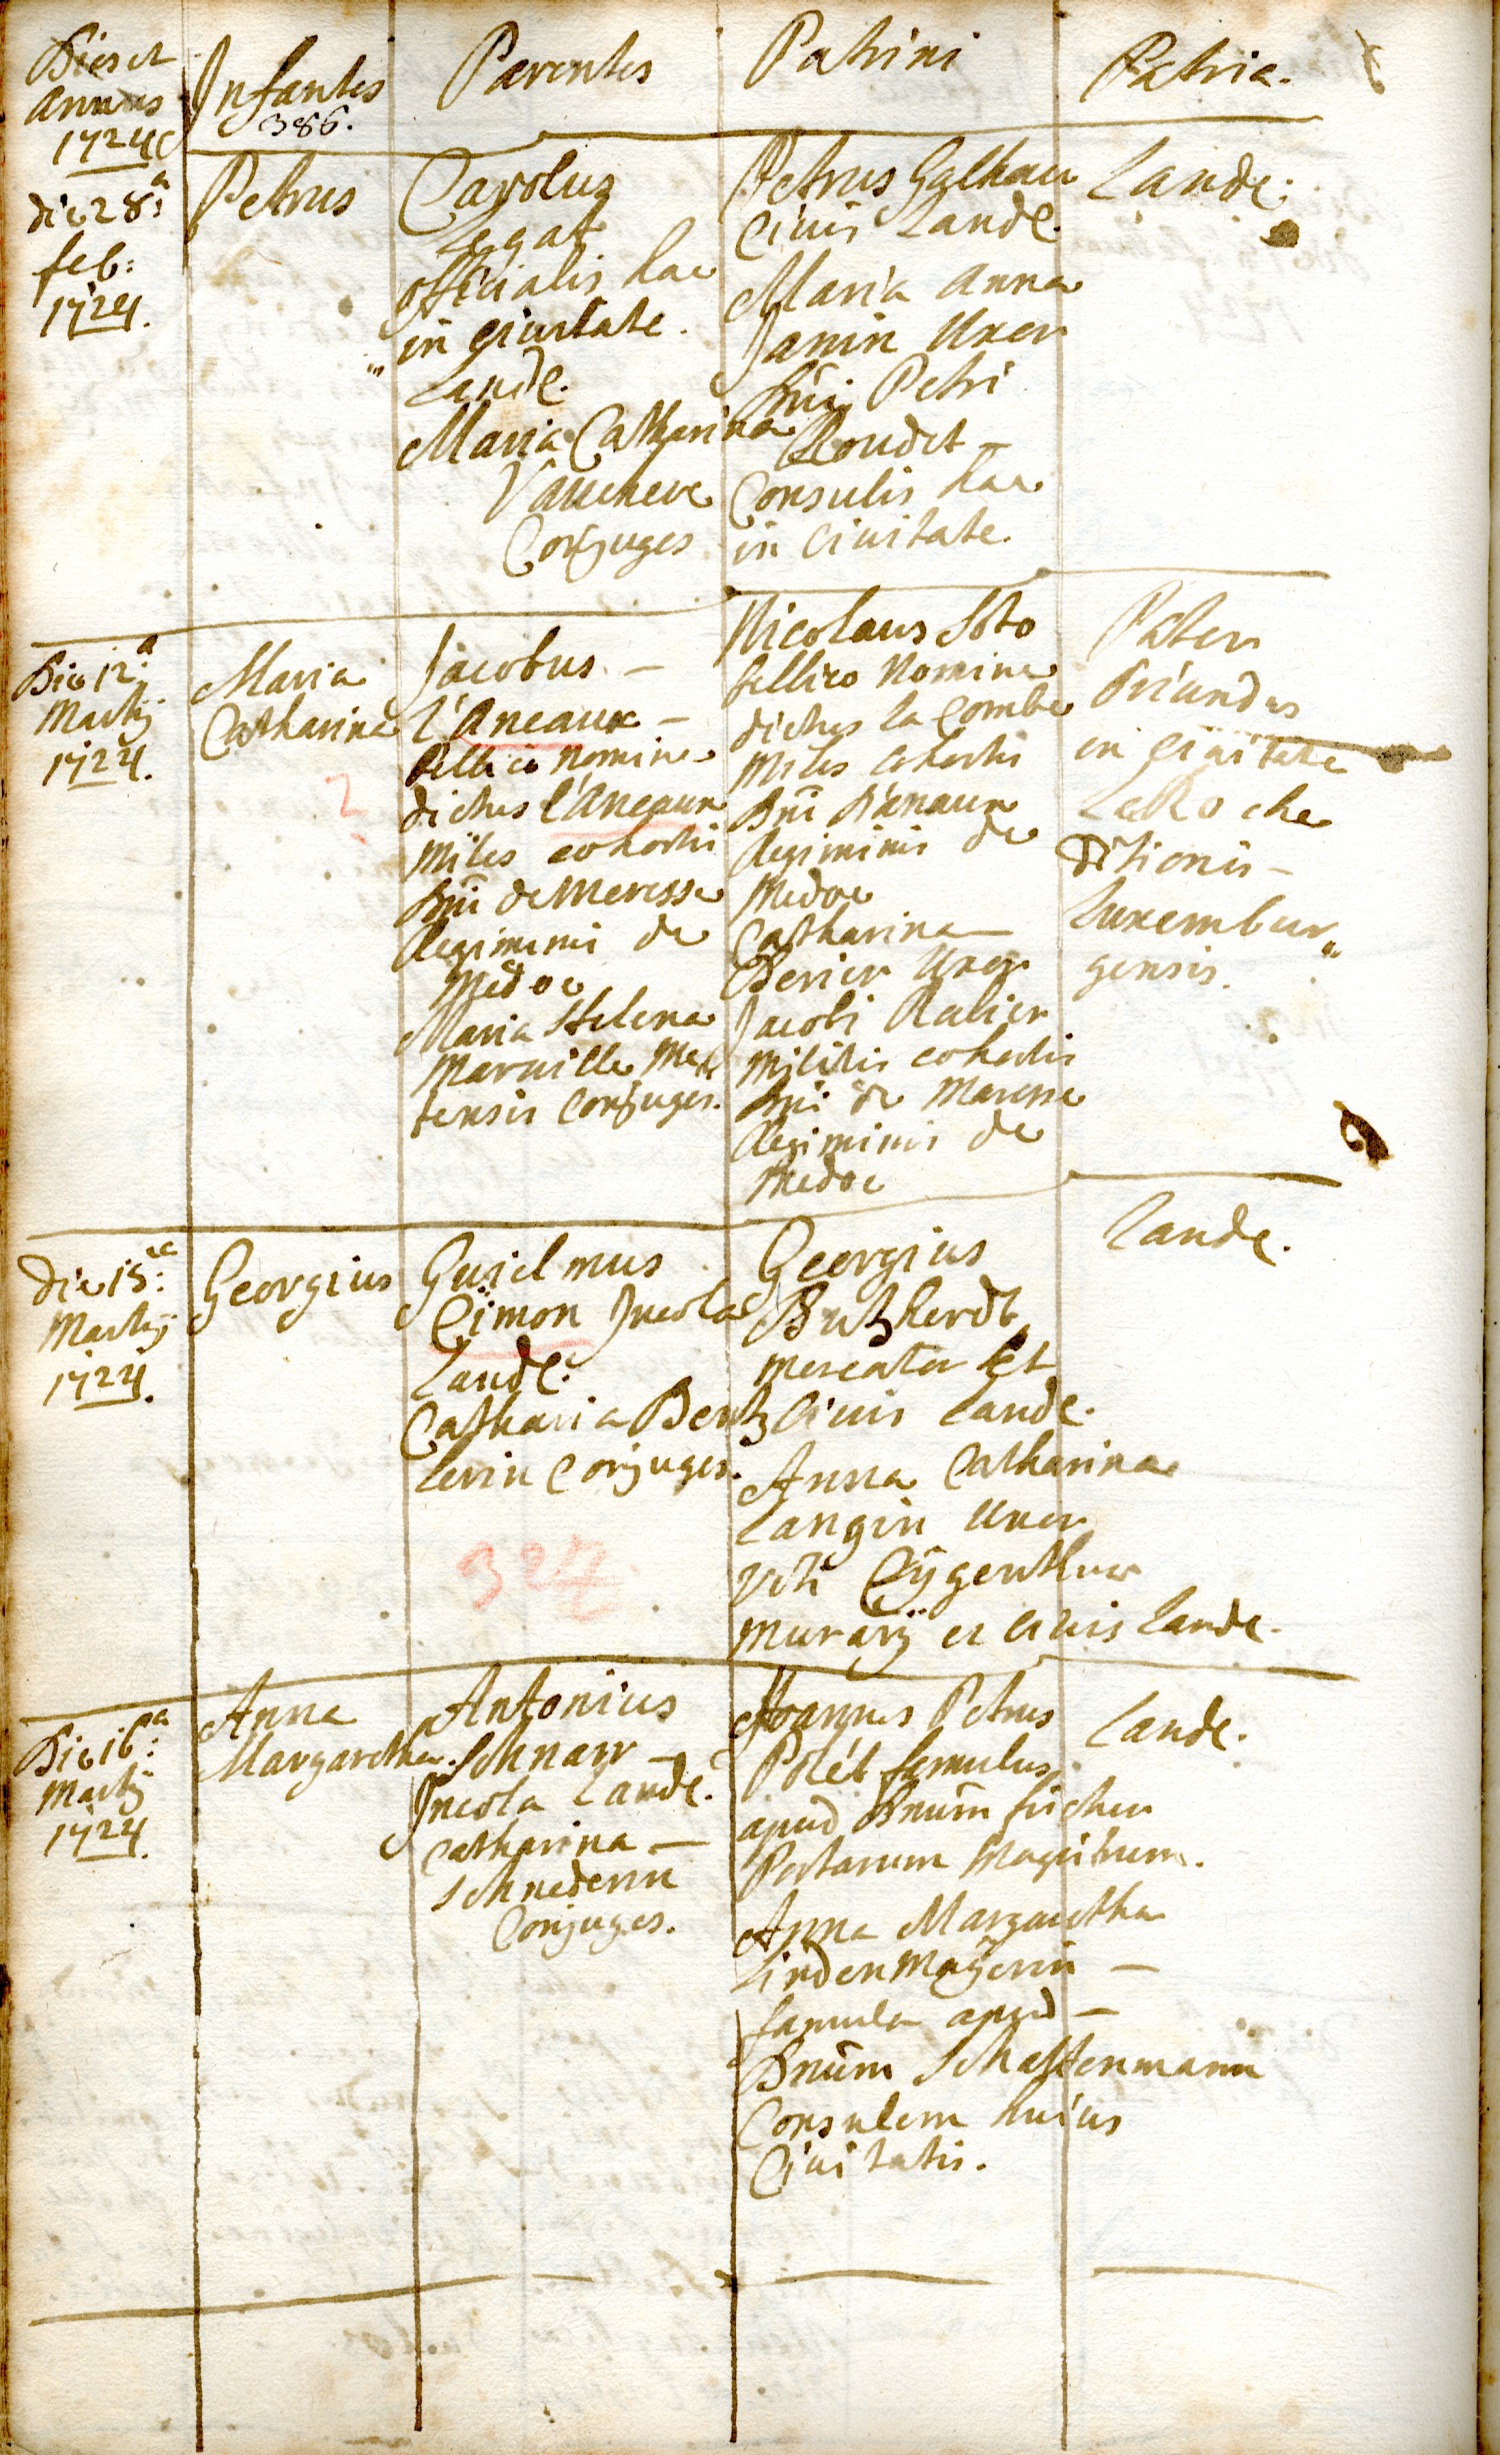 Dies et
annus
1724
Infantes
386.
Parentes
Patrini
Patria.
die 28a
feb:
1724.
Petrus
Carolus
Legat
officialis hac
in Ciuitate
Landê.
Maria Catharina
Vaucheve
Conjuges
Petrus Galhau
Ciuis Landê.
Maria Anna
Janin Uxor
Dni Petri
Roudet
Consulis hac
in Ciuitate.
Landê.
Die 12a
Martij
1724.
Maria
Catharina
Jacobus
l'Aneaux
Bellico Nomine
dictus l'Aneaux
Miles cohortis
Dni de Meresse
Regiminis de
Medoc
Maria Helena
Maruille Me
tensis Conjuges.
Nicolaus Soto
bellico Nomine
dictus la Combe
Miles Cohortis
Dni
Regiminis de
Medoc
Catharina
Berier Uxor
Jacobi Ralier
Militis cohortis
Dni de Maresse
Regiminis de
Medoc
Pater
Oriundus
in Ciuitate
La Roche
Ditionis
Luxembur„
gensis.
die 15ta
Martij
1724.
Georgius
Guielmus
Cimon Jncola
Landê.
Catharia Bentz
lerin Conjuges.
324
Georgius
Butzherdt
Mercator Et
Ciuis Landê.
Anna Catharina
Langin Uxor
Viti Cÿgenthur
Murarij et Civis Landê.
Landê.
Die 16a
Martij
1724.
Anna
Margaretha
Antonius
Schnarr
Jncola Landê.
Catharina
Schnederin
Conjuges.
Joannes Petrus
Polét famulus
apud Dnum fücher
Portarum Magistrum.
Anna Margaretha
Lindenmaÿerin
famula apud
Dnum Schattenmann
Consulem huius
Ciuitatis.
Landê.